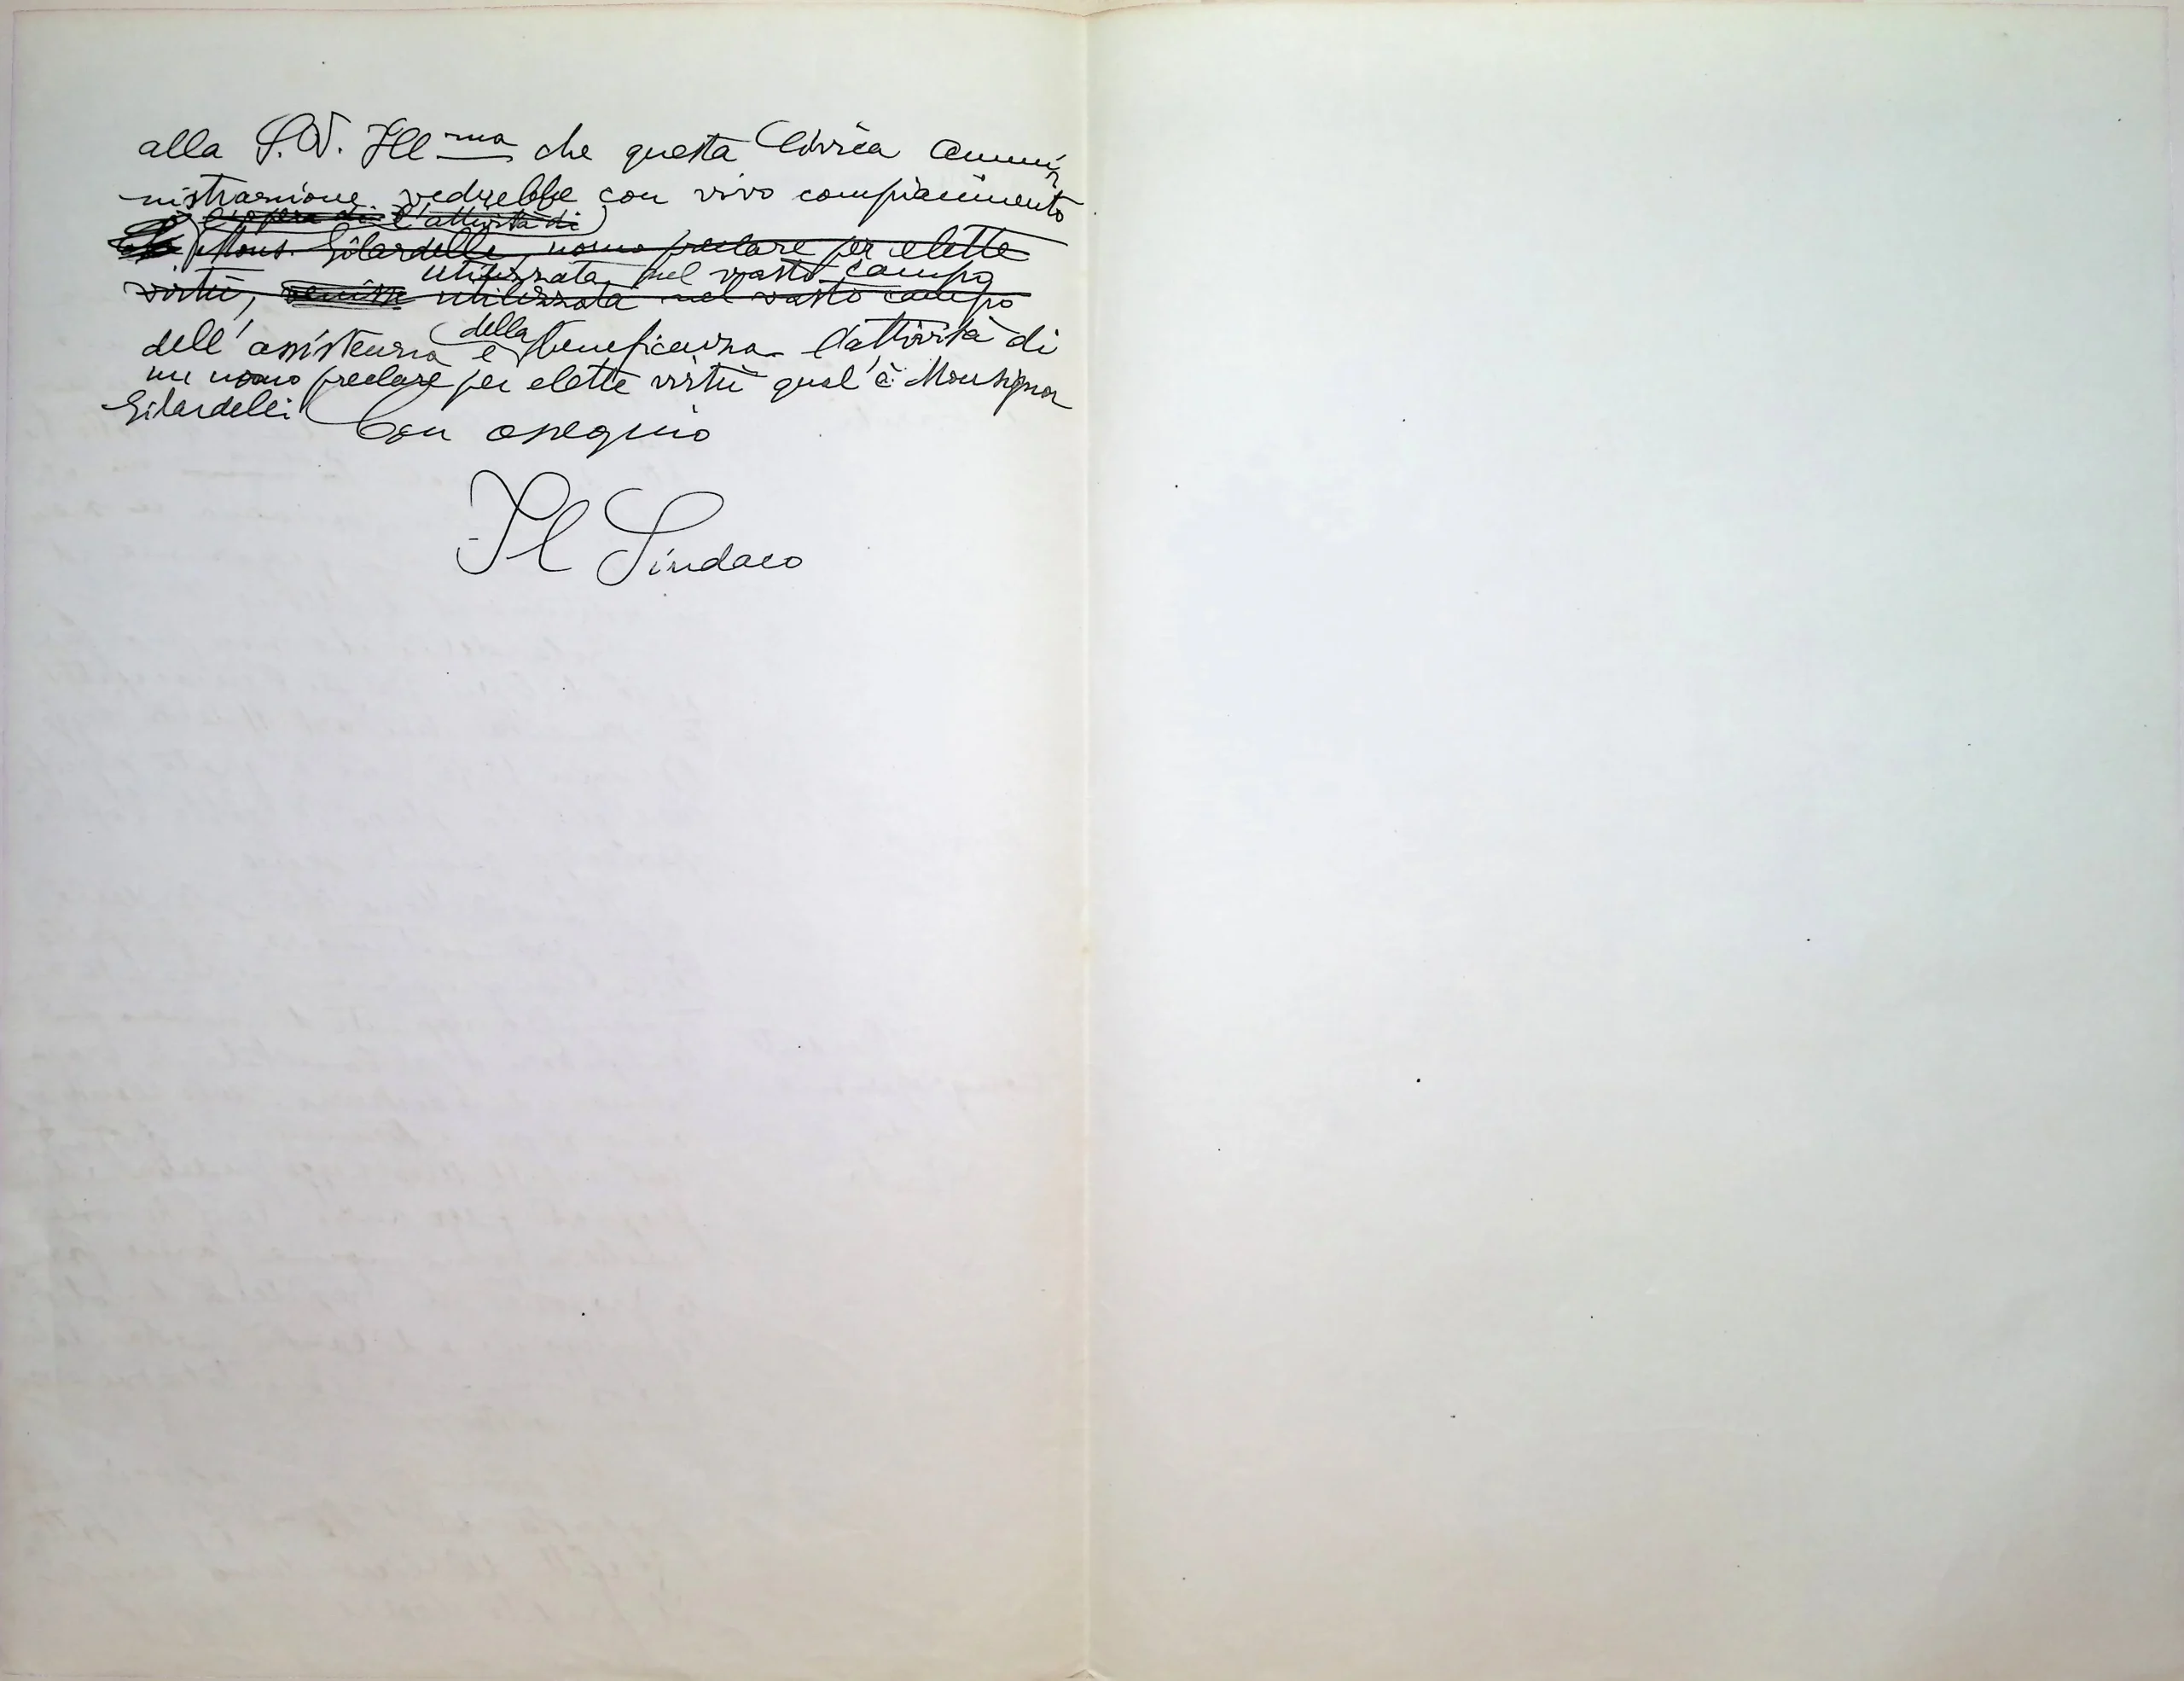 alla S.V. Ill ma che questa Civica Ammi
nistrazione vedrebbe con vivo compiacimento
l'opera di l'attività di
Mons. Gilardelli, uomo preclare per elette
utilizzata nel vasto campo
virtù, venisse utilizzata nel vasto campo
della
dell'assistenza e beneficenza l'attività di
un uomo preclare per elette virtù qual'è Monsignor
Gilardelli
Con ossequio
Il Sindaco